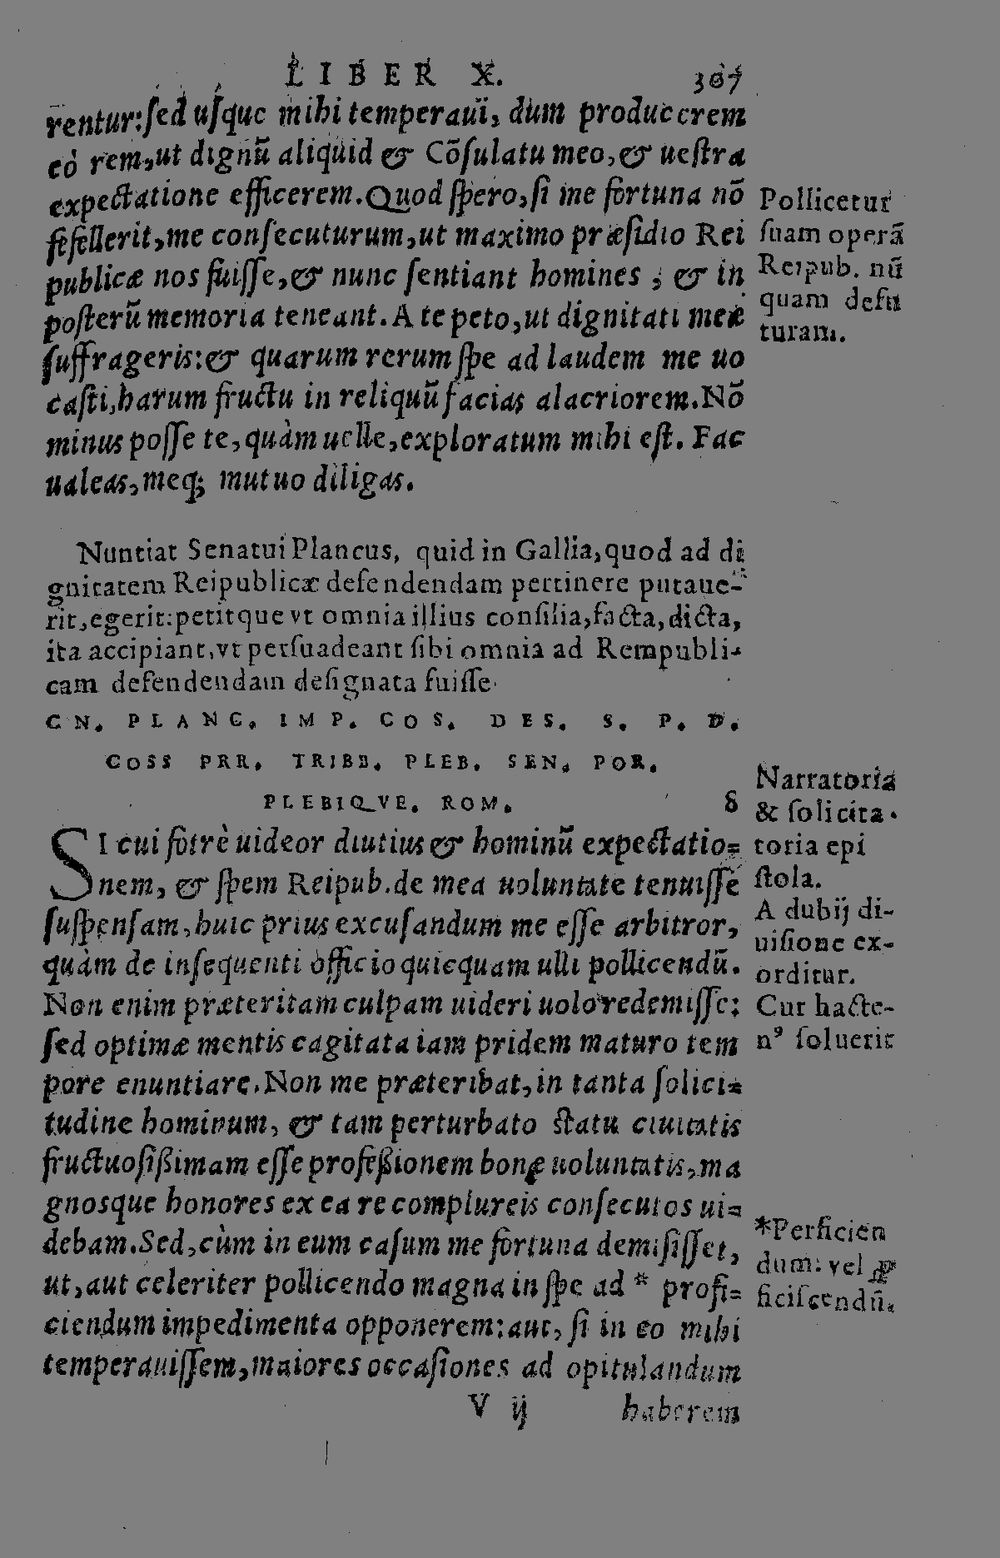 LIBER X. 307
rentur: sed usque mihi temperaui, dum producerem
eò rem, ut dignũ aliquid & Cõsulatu meo, & uestra
expectatione efficerem. Quod spero, si me fortuna nõ
fefellerit, me consecuturum, ut maximo præsidio Rei
publicæ nos fuisse, & nunc sentiant homines ; & in
posterũ memoria teneant. A te peto, ut dignitati meæ
suffrageris: & quarum rerum spe ad laudem me uo
casti, harum fructu in reliquũ facias alacriorem. Nõ
minus posse te, quàm uelle, exploratum mihi est. Fac
ualeas, meq; mutuo diligas.
Pollicetur
suam operã
Reipub. nũ
quam defu
turam.
Nuntiat Senatui Plancus, quid in Gallia, quod ad di
gnitatem Reipublicæ defendendam pertinere putaue-
rit, egerit: petitque vt omnia illius consilia, facta, dicta,
ita accipiant, vt persuadeant sibi omnia ad Rempubli-
cam defendendam designata fuisse.
CN. PLANC. IMP. COS. DES. S. P. D.
COSS PRR. TRIBB. PLEB. SEN. POR.
PLEBIQVE. ROM. 8
SI cui fotrè uideor diutius & hominũ expectatio=
nem, & spem Reipub. de mea uoluntate tenuisse
suspensam, huic prius excusandum me esse arbitror,
quàm de insequenti officio quicquam ulli pollicendũ.
Non enim præteritam culpam uideri uolo redemisse:
sed optimæ mentis cagitata iam pridem maturo tem
pore enuntiare. Non me præteribat, in tanta solici=
tudine hominum, & tam perturbato statu ciuitatis
fructuosissimam esse professionem bonæ uoluntatis, ma
gnosque honores ex ea re complureis consecutos ui=
debam. Sed, cùm in eum casum me fortuna demisisset,
ut, aut celeriter pollicendo magna in spe ad * profi=
ciendum impedimenta opponerem: aut, si in eo mihi
temperauissem, maiores occasiones ad opitulandum
Narratoria
& solicita-
toria epi
stola.
A dubij di-
uisione ex-
orditur.
Cur hacte-
nꝰ soluerit
*Perficien
dum: vel ꝓ
ficiscendũ.
V ij haberem